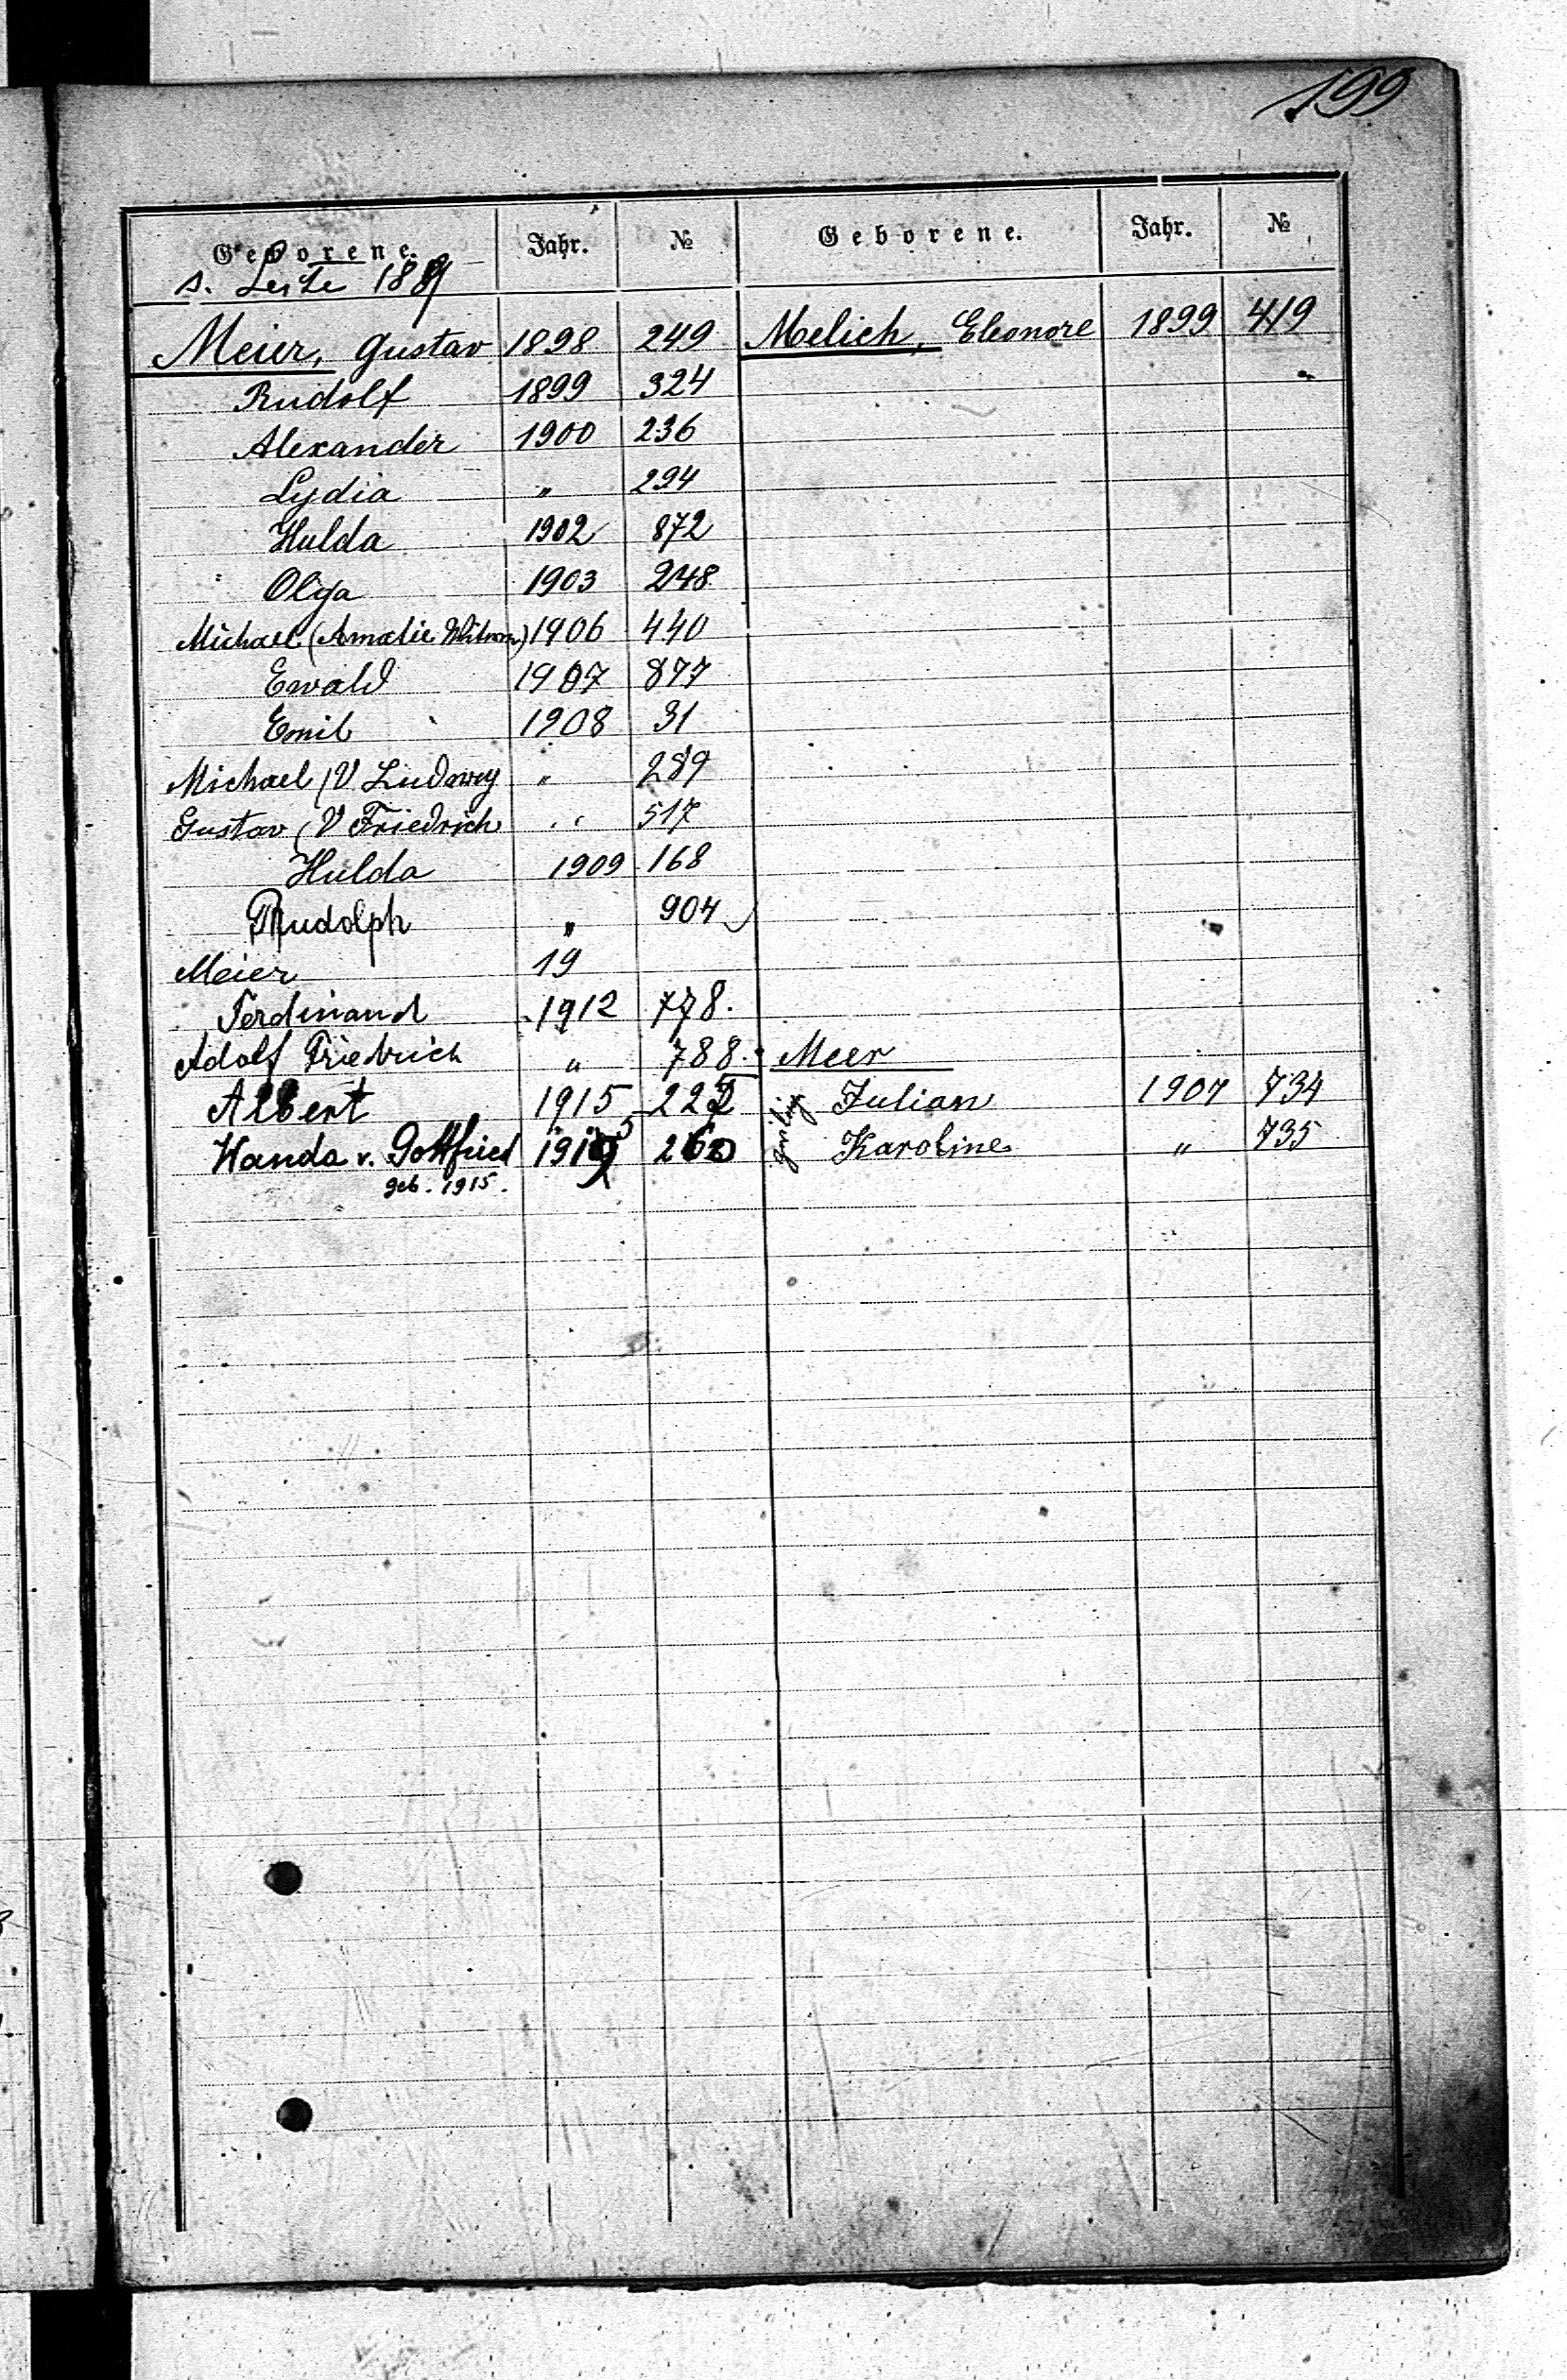 199
Geborene. Jahr. № Geborene. Jahr. №
s. Seite
Meier, Gustav 1898 249 Melich, Eleonore 1899 419
Rudolf 1899 324
Alexander 1900 236
Lydia " 294
Hulda 1902 872
Olga 1903 248
Michael (Amalie 1906 440
Ewald 1907 877
Emil 1908 31
Michael (V. Ludwig " 289
Gustav (V Friedrich " 517
Hulda 1909 168
Rudolph " 904
Meier 19
Ferdinand 1912 778.
Adolf Friedrich " 788. Meer
Albert 1915 Julian 1907 734
Wanda v. Gottfried 260 Karoline " 735
geb. 1915.